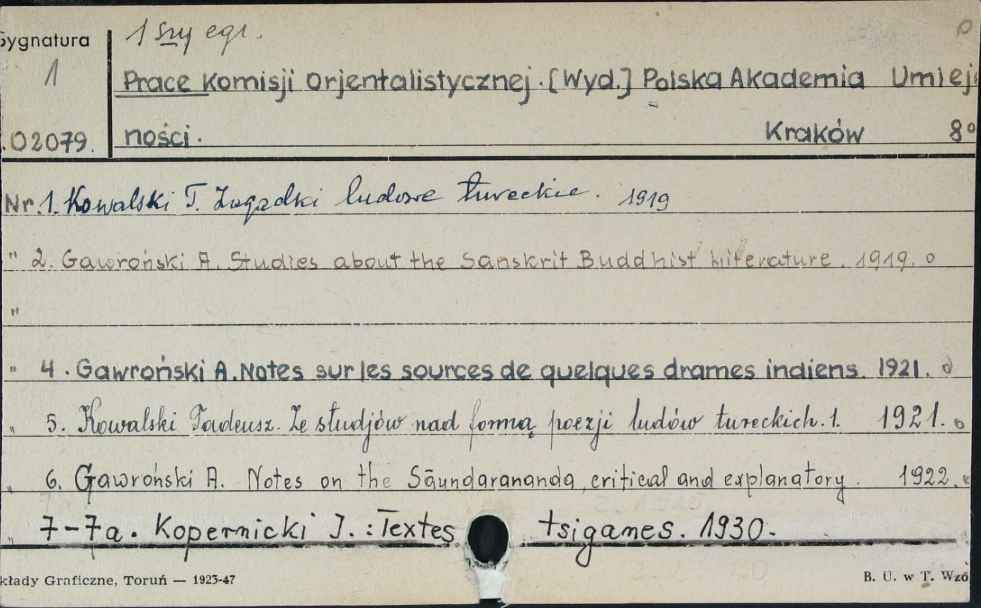 Sygnatura
1 szy egz.
1
Prace Komisji Orjentalistycznej. [Wyd.] Polska Akademia Umiej
ności. Kraków 8°
.02079.
Nr. 1. Kowalski T. Zagadki ludowe tureckie. 1919
" 2. Gawroński A. Studies about the Sanskrit Buddhist Literature. 1919. o
"
" 4. Gawroński A. Notes sur les sources de quelques drames indiens. 1921. o
" 5. Kowalski Tadeusz. Ze studjów nad formą poezji ludów tureckich. 1. 1921. o
" 6. Gawroński A. Notes on the Sāundarananda, critical and explanatory. 1922. o
7-7a. Kopernicki J.: Textes tsiganes. 1930.
kłady Graficzne, Toruń — 1923-47
B. U. w T. Wzó